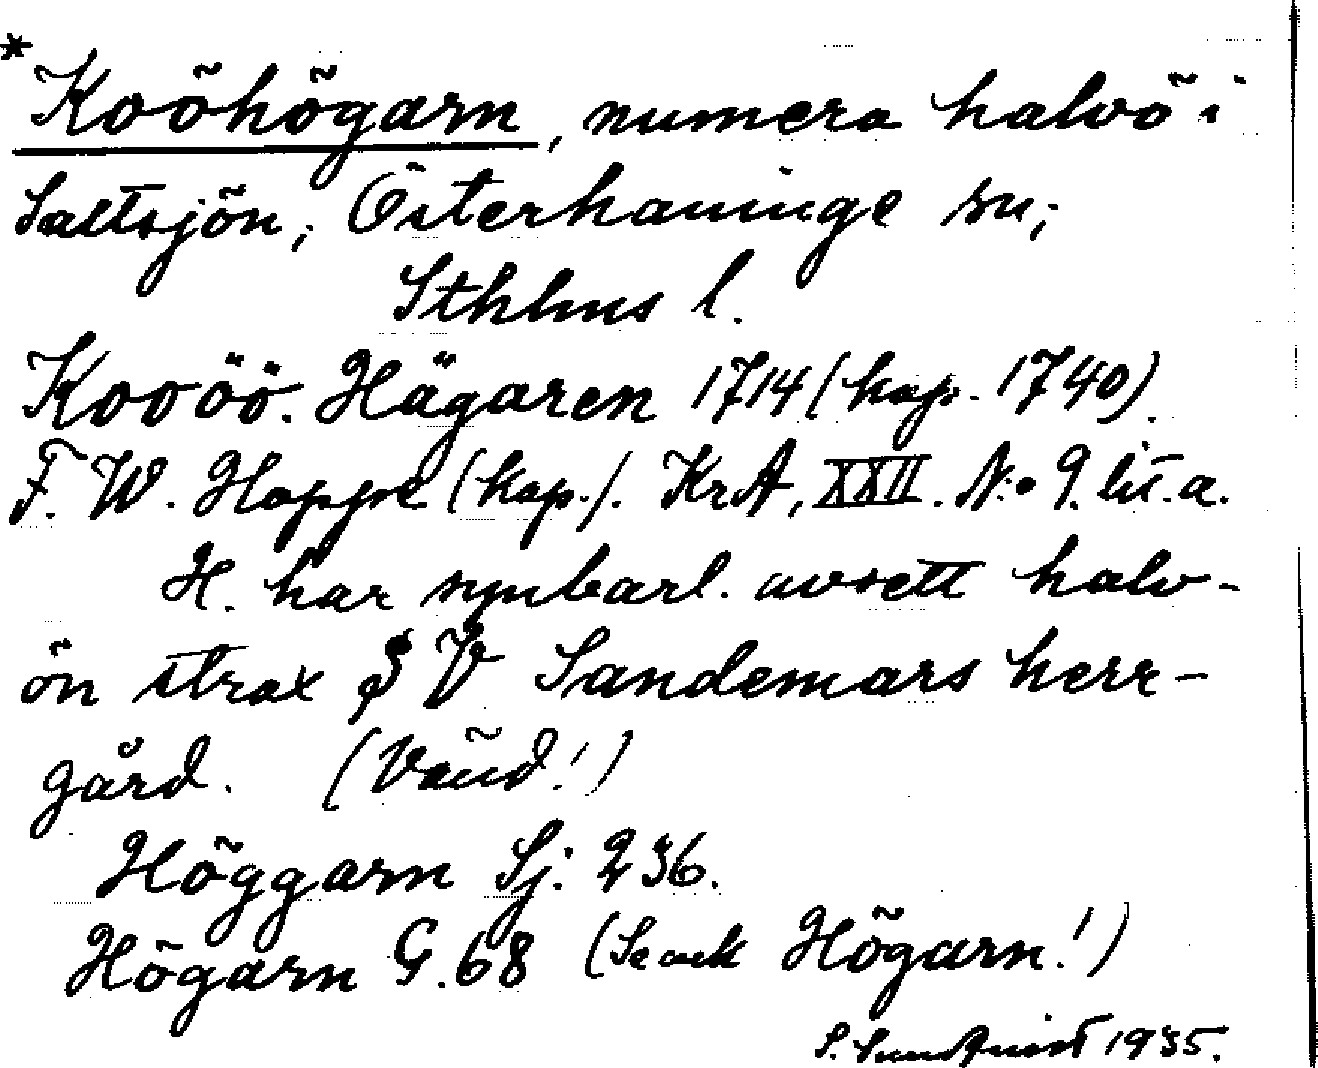 *Koöhögarn, numera halvö i
Saltsjön, Österhaninge sn,
Sthlms l.
Kooöö. Hägaren 1714 (kop. 1740)
F. W. Hoppe (kop.). KrA, XXII. N:o 9. lit. a.
H. har synbarl. avsett halv-
ön strax S V Sandemars herr-
gård. (Vänd!)
Höggarn Sj. 236.
Högarn G. 68 (Se ock Högarn!)
S. Sundquist 1935.